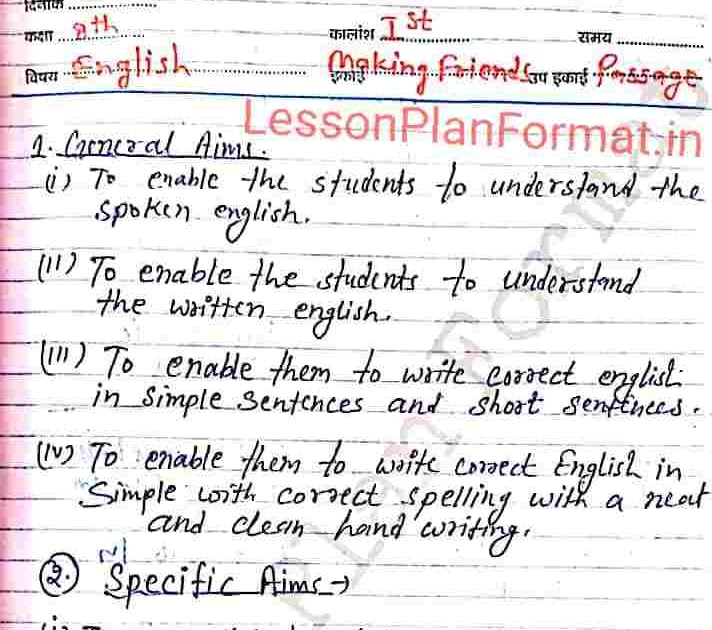 दिनांक ....................
कक्षा ...8th............... कालांश .I st............... समय ....................
विषय ..English.............................. इकाई Making Friends उप इकाई .Passage
LessonPlanFormat.in
1. General Aims.
(i) To enable the students to understand the
spoken english.
(II) To enable the students to understand
the written english.
(III) To enable them to write correct english
in simple sentences and short sentnces.
(IV) To enable them to write correct English in
Simple with correct spelling with a neat
and clean hand writing.
2. Specific Aims→
Plan Format